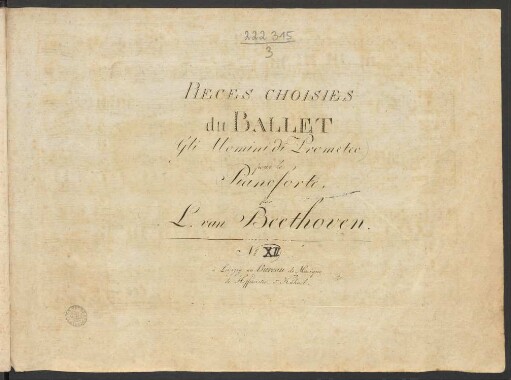 222.315
3
PIECES CHOISIES
du BALLET
Gli Uomini di Prometeo
pour le
Pianoforte,
par
L. van Beethoven.
XII
à Leipzig au Bureau de Musique
de Hoffmeister & Kühnel.